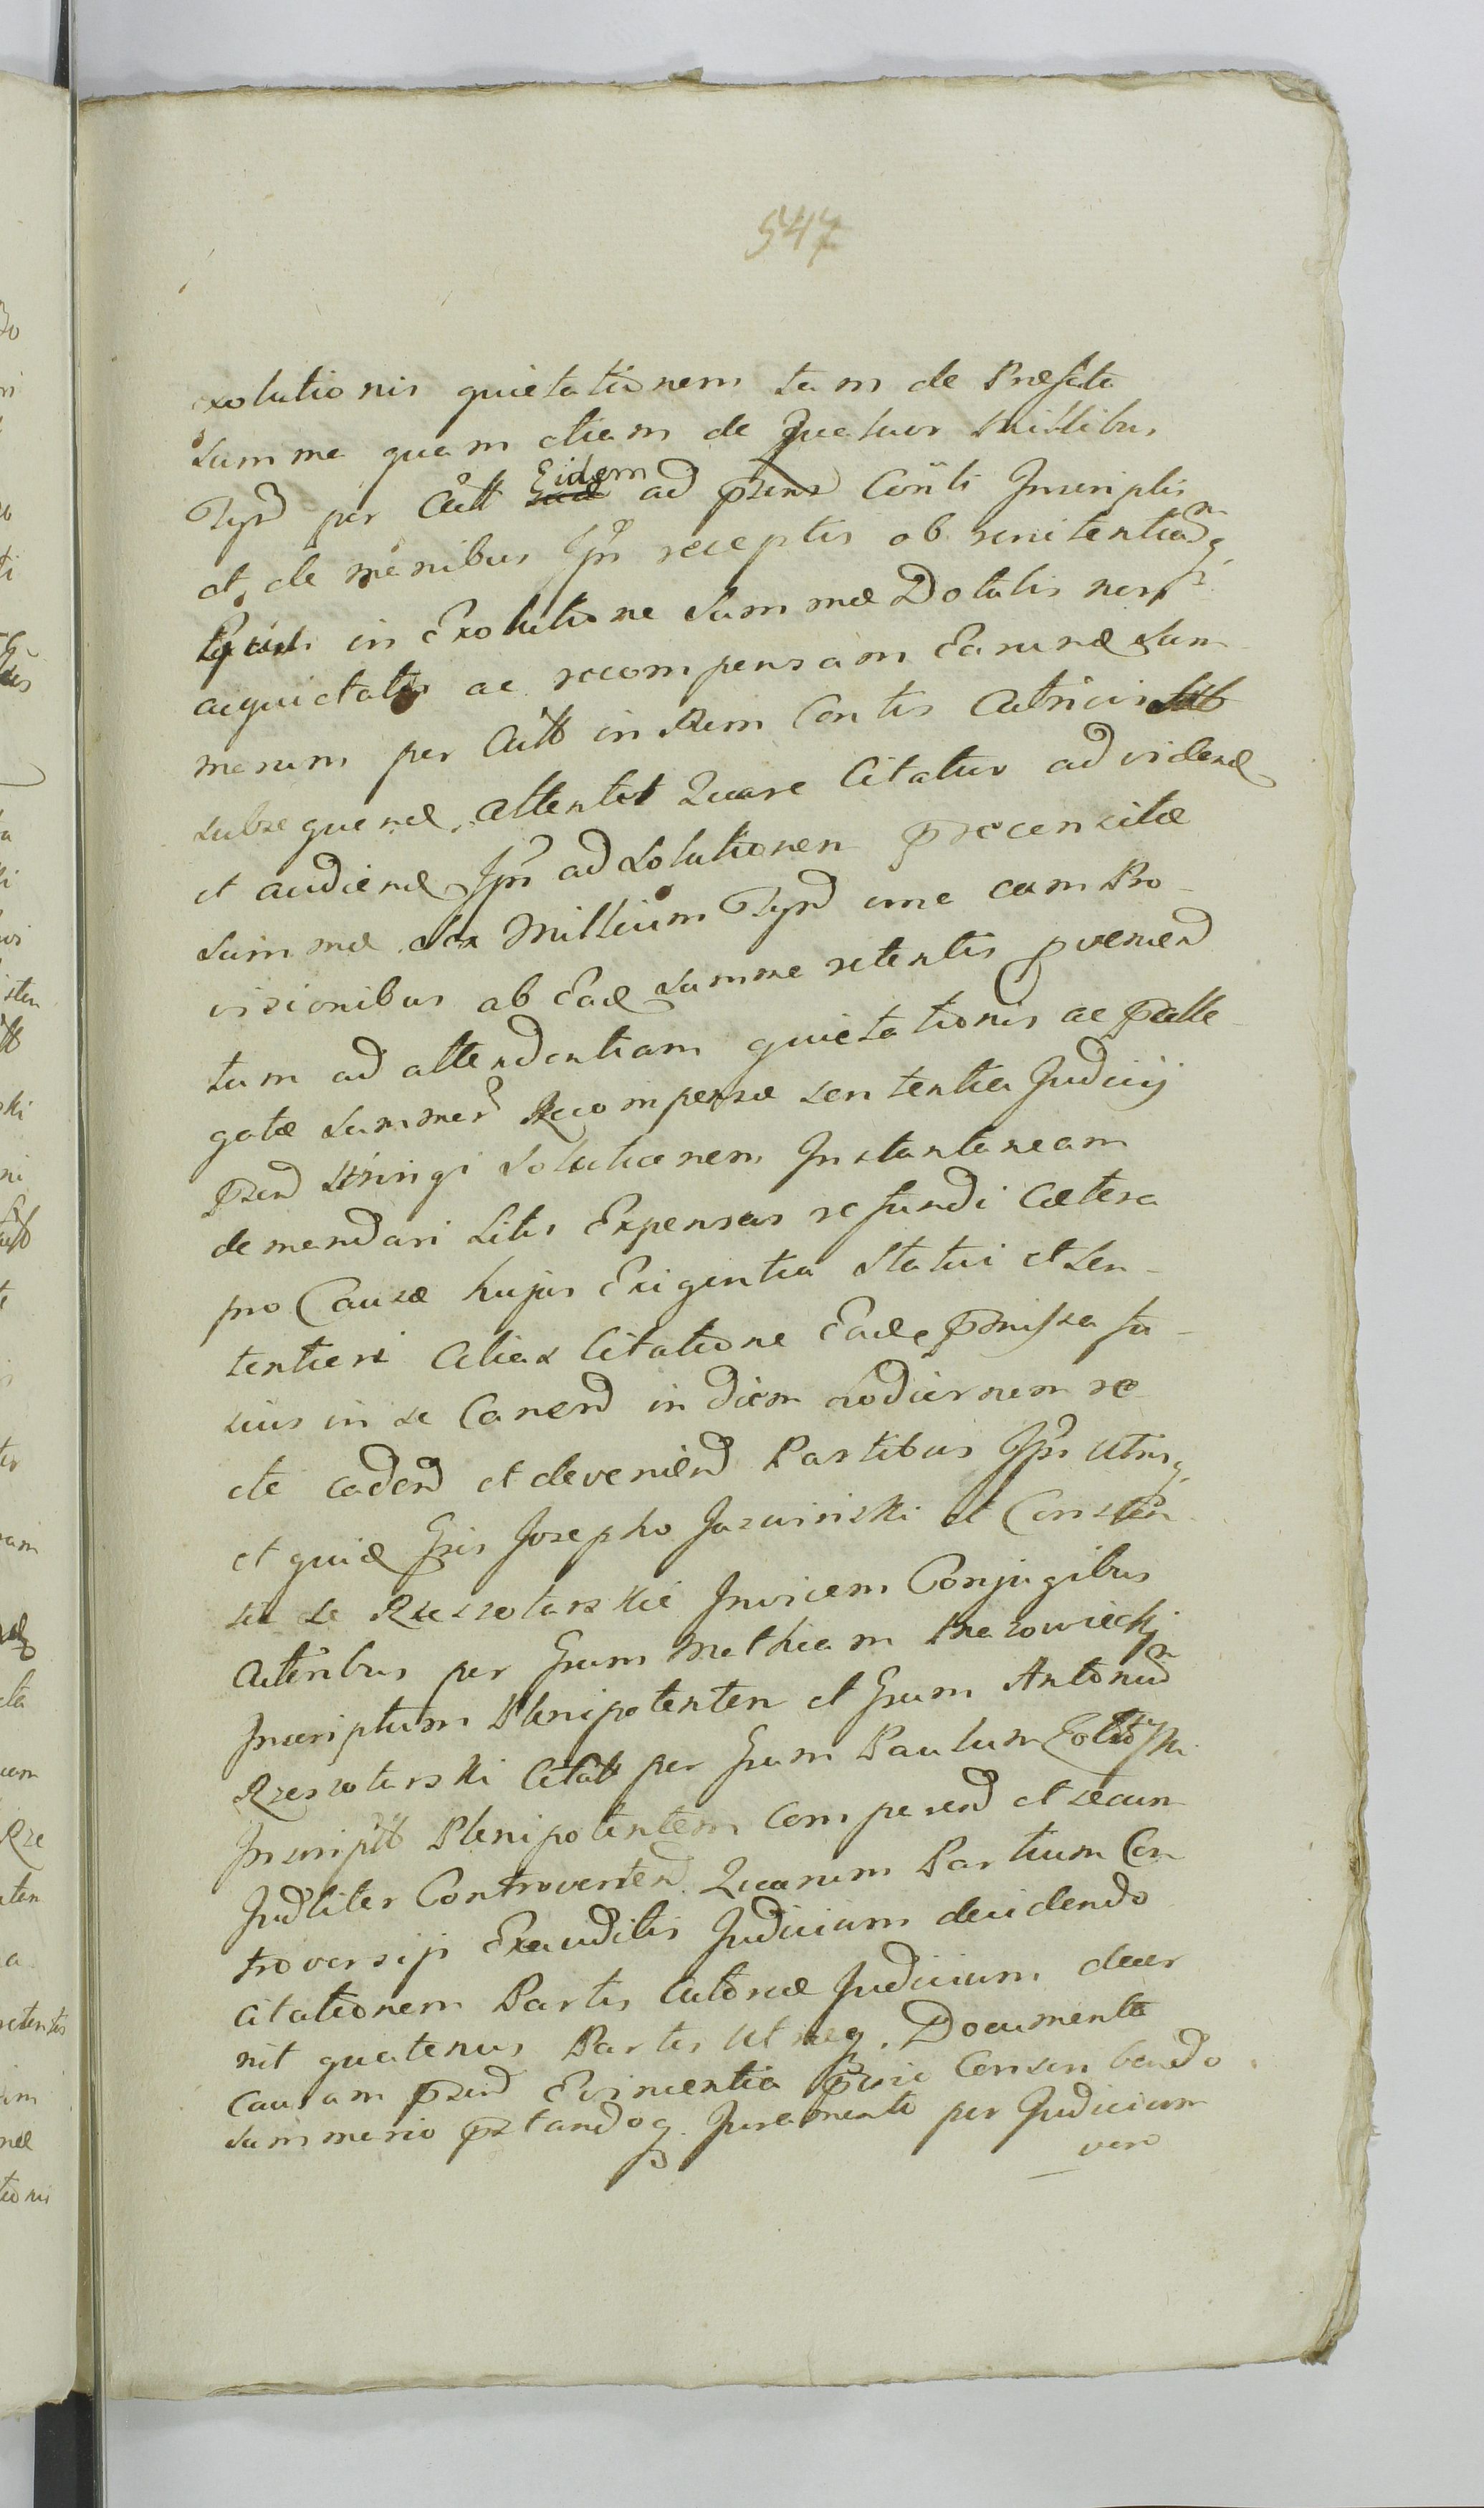 547
exolutionis quietationem tam de Præfata
Summa quam etiam de Quatuor Millibus
Eidem
per Citt ad Conti Inscriptis
et de manibus Ipsi receptis ob renitentiam
in Exolutione Summæ Dotalis non
acquietatis ac recompensam Earund Sum
marum per Citt in Rem Contis Actricis
subsequend, attentat Quare Citatur ad videnđ
et audiend Ipsi ad Solutionem præcensitæ
Summæ Sex Millium una cum Pro-
visionibus ab Ead Summa retentis proveniend
tum ad attendentiam quietationis ac præalle
gatæ Summar Recompensæ sententia Judicij
præsen stringi Solutionem Instantaneam
demandari Litis Expensas refundi Cætera
pro Causæ hujus Exigentia Statui et Sen-
tentieri Alias Citatione Eade præmissa fu-
sius in se Canend in diem hodiernum re
cte cadend et deveniend Partibus Ipsis Utrisq
et quid Grsis Josepho Jaswinski et Constan
tia de Rzeszotarskie Invicem Conjugibus
Actoribus per Grsum Mathiam Mazowiecki
Inscriptum Plenipotenten et Grsum Antonium
Rzeszotarski Citatt per Grsum Paulum
Inscriptt Plenipotentem Comparend et secum
Judliter Controvertend. Quarum Partium Con
troversijs Exauditis Judicium decidendo
Citationem Partis Actoreæ Judicium decer
nit quatenus Partes Utræq. Documenta
Causam præsen Evincentia Conscribendo
Summario præstandoq. Juramento per Judicium
vero